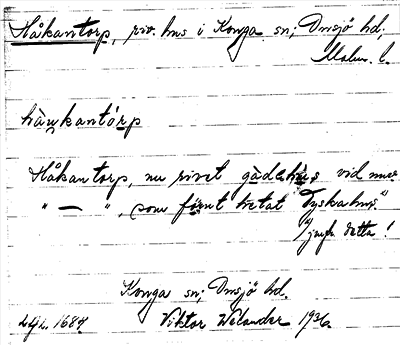 Håkantorp, riv. hus i Konga sn; Onsjö hd;
Malm. l.
håu̯kantórp
Håkantorp, nu rivet gådehus vid
" — ", som förut hetat "Tyskahus"
jmfr detta!
Konga sn; Onsjö hd.
Lyr. 1684. Viktor Welander 1936.